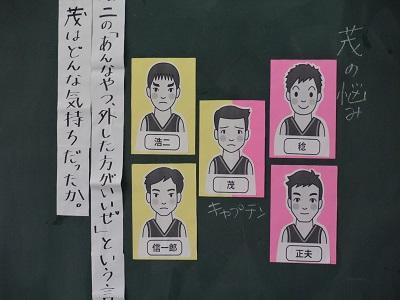 茂の悩み
稔
正夫
茂
キャプテン
浩二
信一郎
二の「あんなやつ、外した方がいいぜ」という言
茂はどんな気持ちだったか。